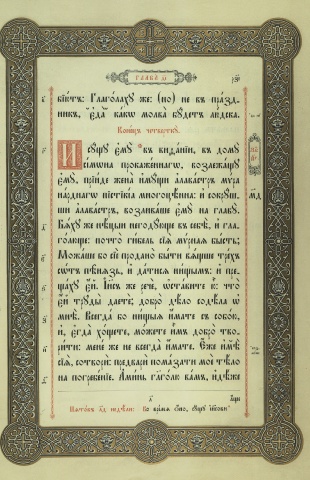 Глава д҃і
бїютъ: Глаголаху же: (но) не въ празд-
никъ, єда какѡ молва будетъ людска.
Конецъ четвертку.
И сущу ємѵ въ виданїи, въ дому
сїмона прокаженнагѡ, возлежащу
ємѵ, прїиде жена имущи алавастръ мѵра
нарднагѡ пїстїкїа многоцѣнна: и сокруш-
ши алавастръ, возливаше ємѵ на главу.
Бѧху же нѣцыи негодующе въ себѣ, и гла-
голюще: почто гибель сїѧ мѵрнаѧ бысть;
Можаше бо сїе продано быти вѧщше трехъ
сотъ пѣнѧзь, и датисѧ нищымъ: и пре-
щаху єй. Іисъ же рече, ѡставите ю: что
єй труды даете; добро дѣло содѣла ѡ
мнѣ. Всегда бо нищыѧ имате съ собою,
и, єгда хощете, можете имъ добро тво-
рити: мене же не всегда имате. Єже имѣ
сїѧ, сотвори: предвари помазати моє тѣло
на погребенїе. Аминь глаголю вамъ, идѣже